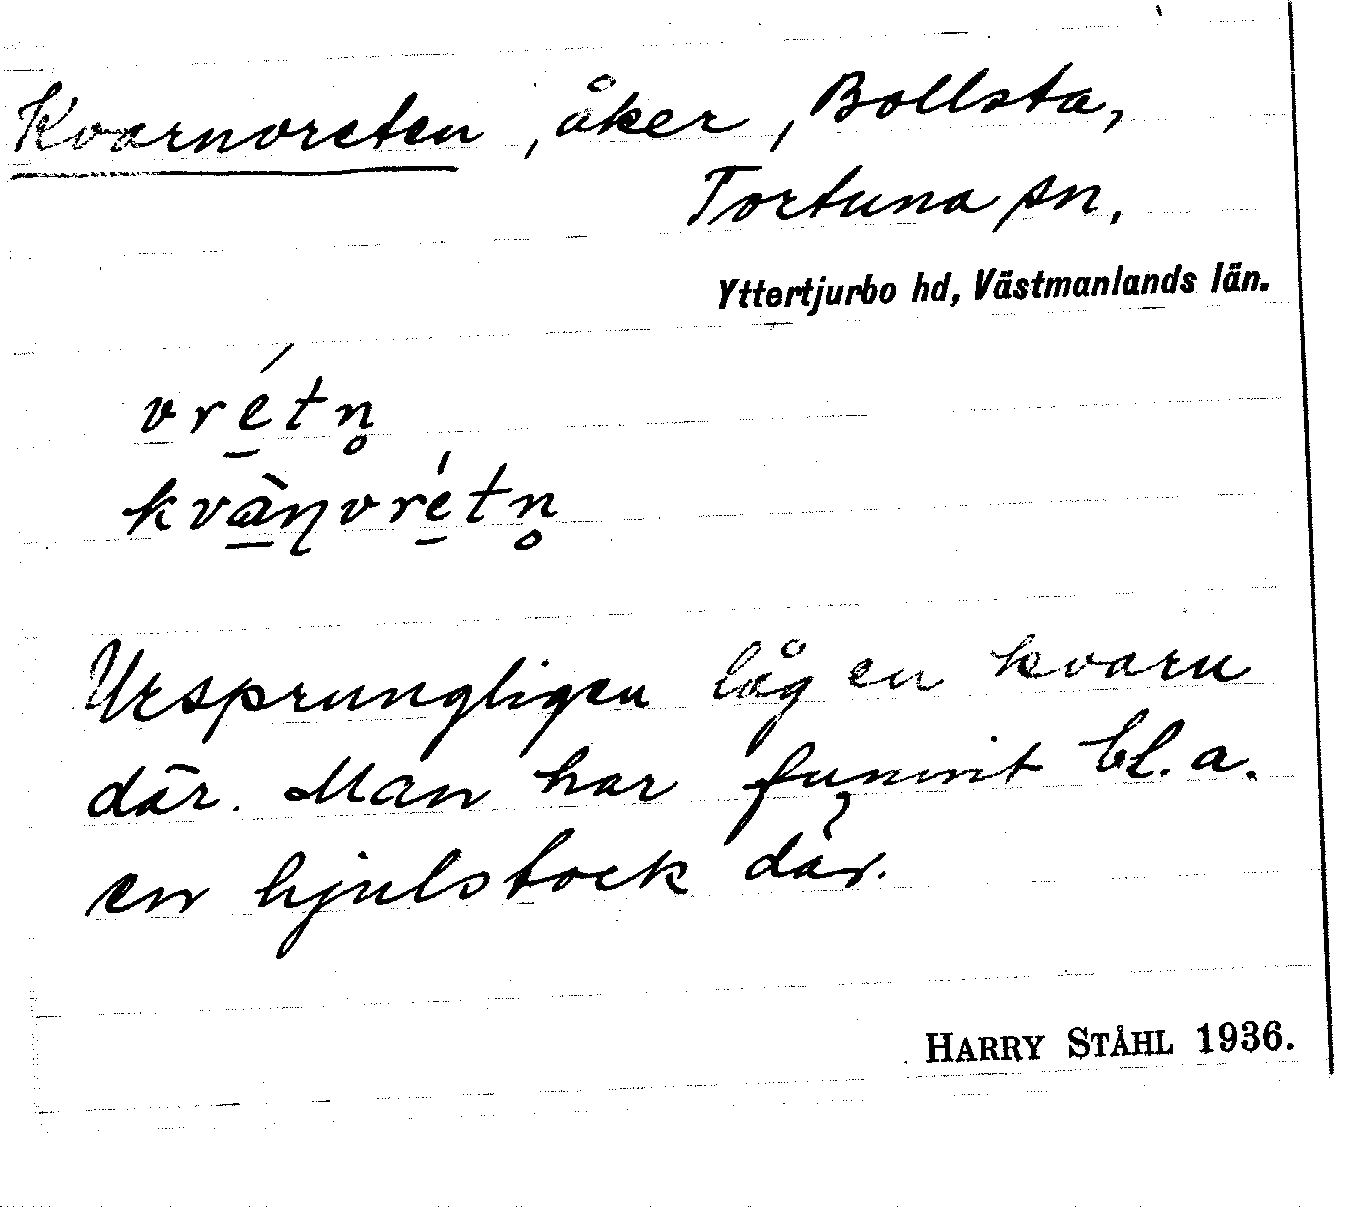 Kvarnvreten, åker, Bollsta,
Tortuna sn,
Yttertjurbo hd, Västmanlands län.
vré̲tn̥
kvà̲ɳvré̲tn̥
Ursprungligen låg en kvarn
där. Man har funnit bl. a.
en hjulstock där.
HARRY STÅHL 1936.